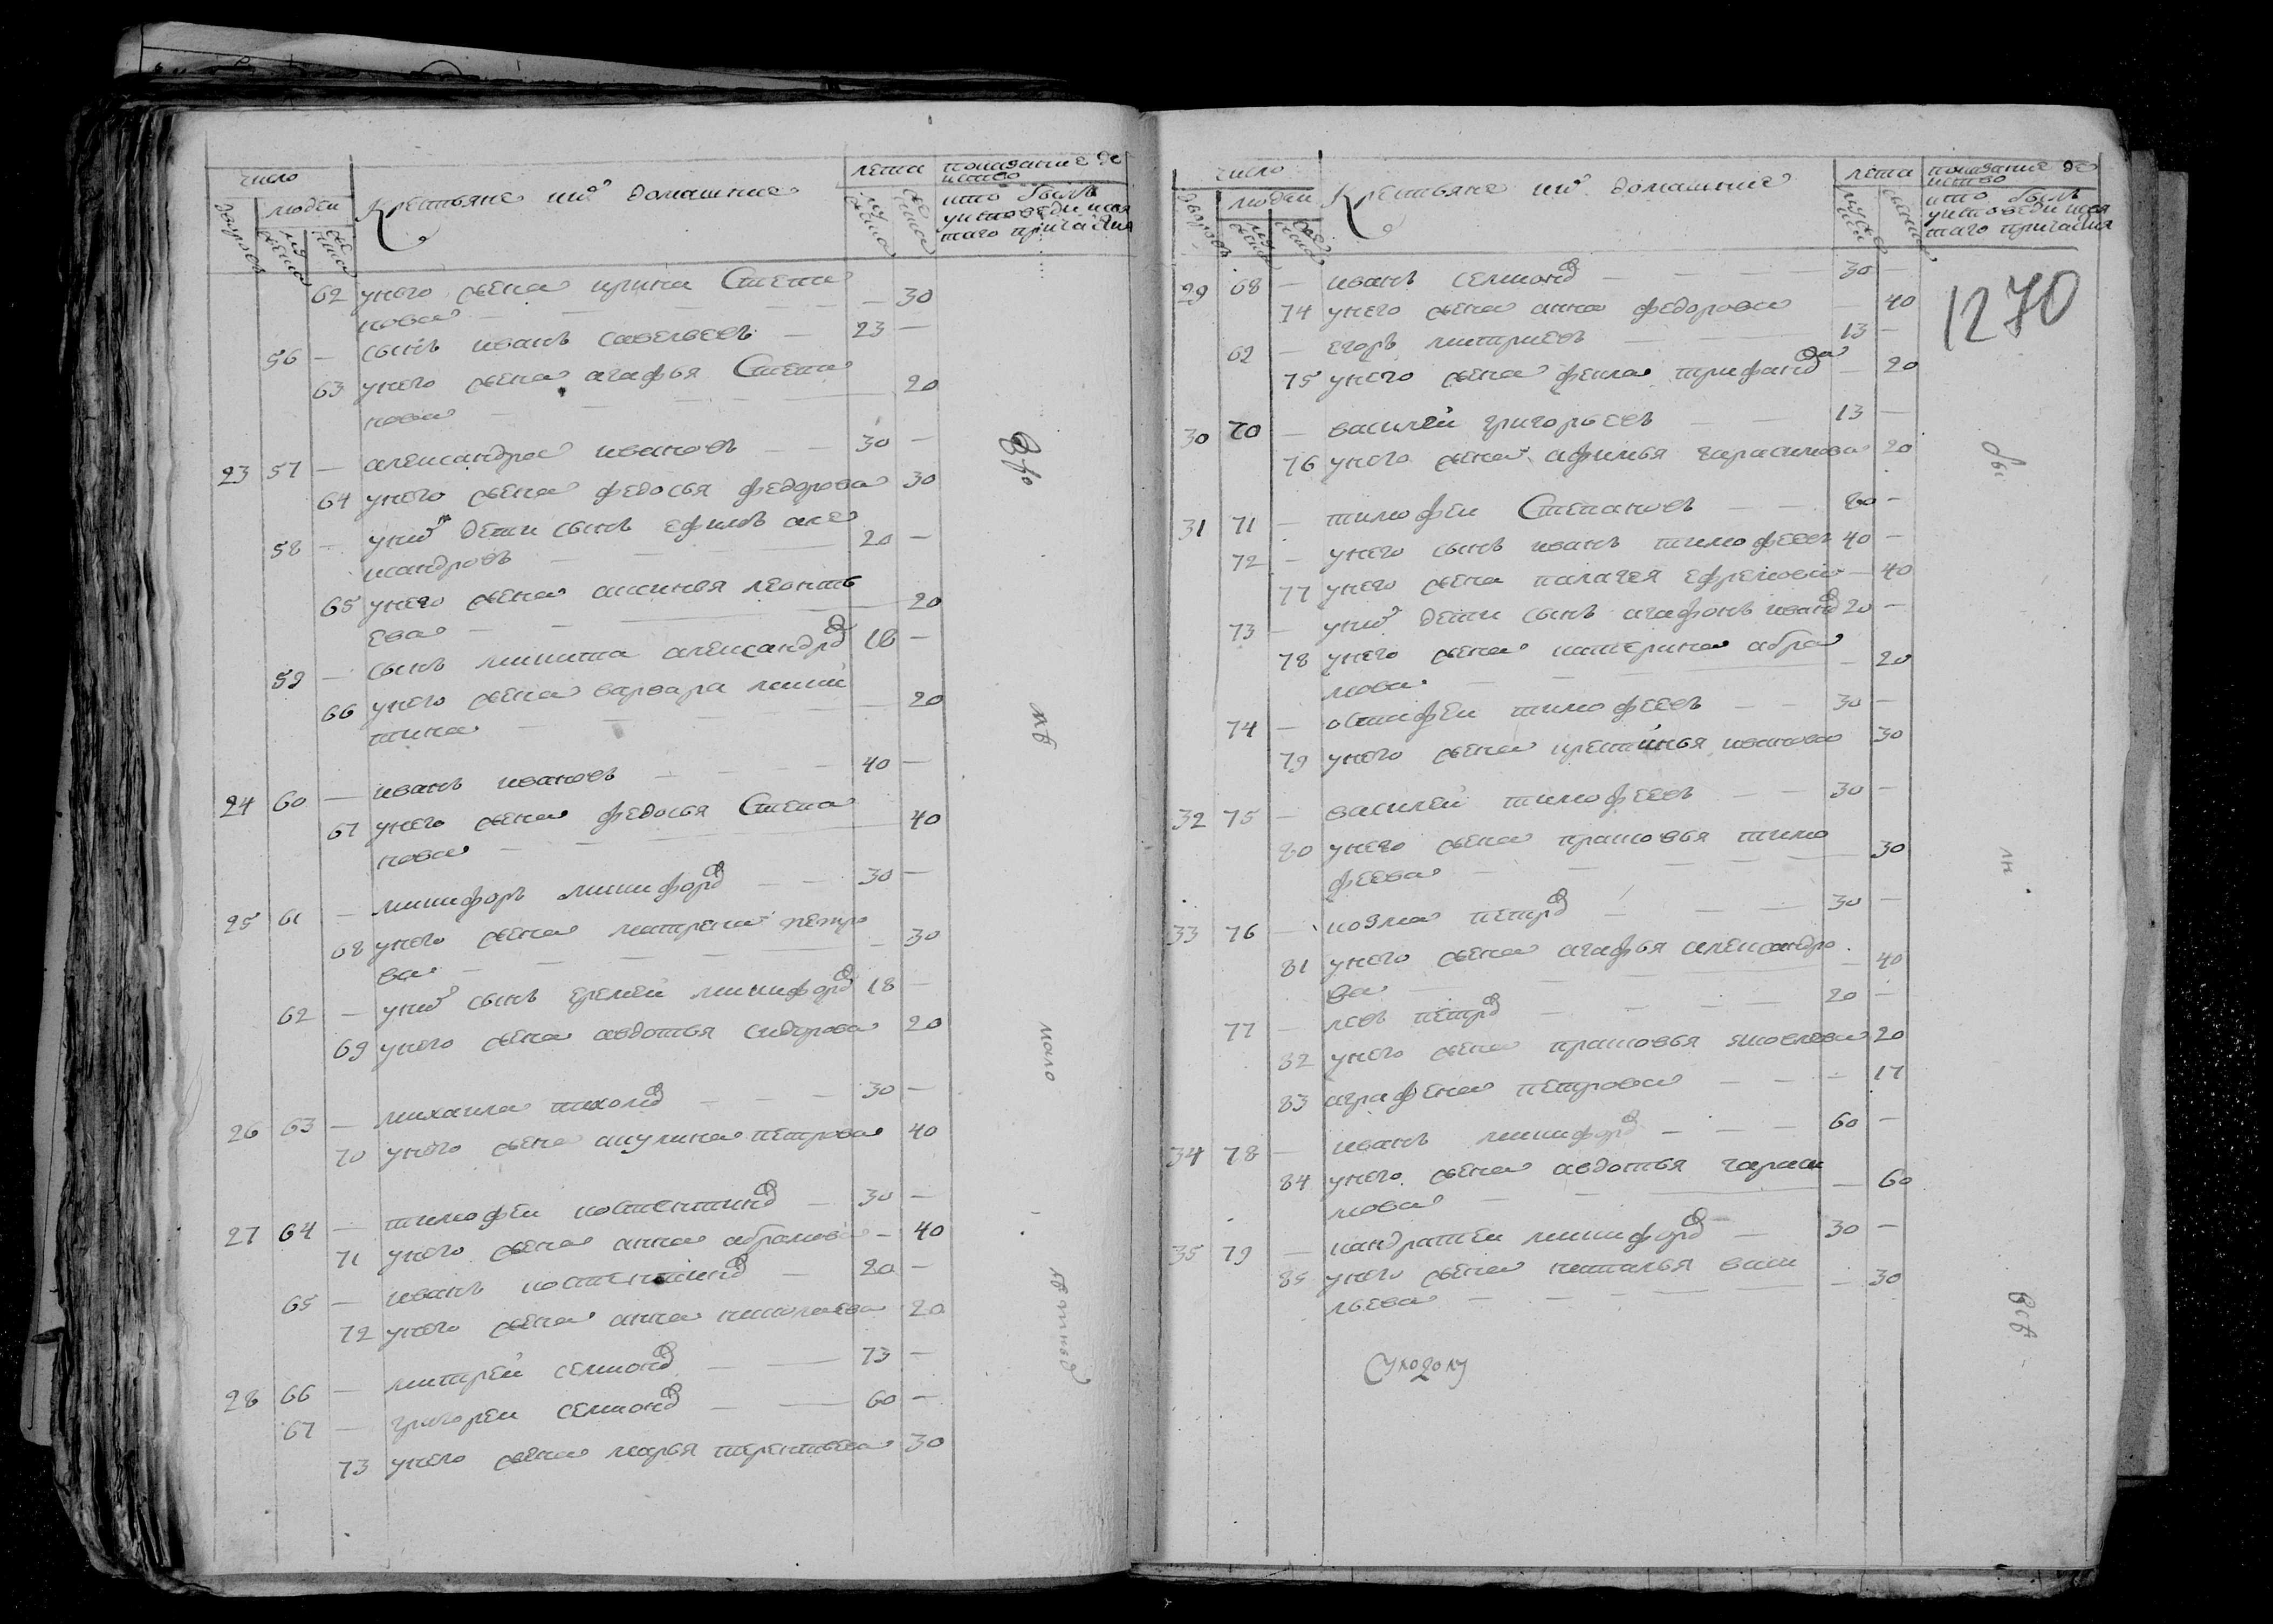 число
людеи
дворовъ
мужеска
женска
Крестьяне ихъ домашние
лета
мужеска
женска
показание де
иство
кто былъ
уисповеди исвя
таго причастия
62 унего жена ирина Степа
нова — 30
56 — сынъ иванъ савельевъ — 23 —
63 унего жена агафья Степа
нова — 20
23 57 — александра ивановъ — 30 —
64 унего жена федосья федорова 30
58 — унихъ дети сынъ ефимъ але
ксандровъ — 20 —
65 унего жена аксинья леонть
ева — 20
59 — сынъ микита александров 18 —
66 унего жена варвара мики
тина — 20
24 60 — иванъ ивановъ — 40 —
67 унего жена федосья Степа
нова — 40
25 61 — микифоръ микифоров — 30 —
68 унего жена матрена петро
ва — 30
62 — унихъ сынъ еремей микифоров 18 —
69 унего жена авдотья сидорова 20
26 63 — михаила пахомов — 30 —
70 унего жена акулина петрова 40
27 64 — тимофеи костентинов — 30 —
71 унего жена анна абрамова — 40
65 — иванъ костентинов — 20 —
72 унего жена анна николаева 20
28 66 — митрей семионов — 73 —
67 — григореи семионов — 60 —
73 унего жена марья терентьева 30
мало
число
людеи
дворовъ
мужеска
женска
Крестьяне ихъ домашние
лета
мужеска
женска
показание де
иство
кто былъ
уисповеди исвя
таго причастия
1270
29 68 — иванъ семионов — 30 —
74 унего жена анна федорова — 40
62 — егоръ митриевъ — 13 —
75 унего жена фекла трифанова — 20
30 70 — василеи григорьевъ — 13 —
76 унего жена афимья гарасимова 20
31 71 — тимофеи Степановъ — 80 —
72 — унего сынъ иванъ тимофеевъ 40 —
77 унего жена палагея ефремова — 40
73 — унихъ дети сынъ агафонъ иванов 20 —
78 унего жена катерина абра
мова — 20
74 — остафеи тимофеевъ — 30 —
79 унего жена крестинья иванова 30
32 75 — василеи тимофеевъ — 30 —
80 унего жена прасковья тимо
феева — 30
33 76 — козма петров — 30 —
81 унего жена агафья александро
ва — 40
77 — левъ петров — 20 —
82 унего жена прасковья яковлева 20
83 аграфена петрова — 17
34 78 — иванъ микифоров — 60 —
84 унего жена авдотья гараси
мова — 60
35 79 — кандратеи микифоров — 30 —
85 унего жена наталья васи
льева — 30